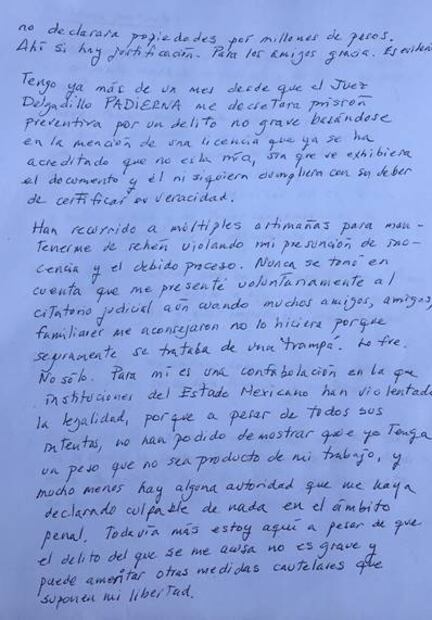 no declarara propiedades por millones de pesos.
Ahí si hay justificación. Para los amigos gracia. Es eviden
Tengo ya más de un mes desde que el Juez
Delgadillo PADIERNA me decretara prisión
preventiva por un delito no grave basándose
en la mención de una licencia que ya se ha
acreditado que no es la mía, sin que se exhibiera
el documento y él ni siquiera cumpliera con su deber
de certificar su veracidad.
Han recurrido a múltiples artimañas para man-
tenerme de rehén violando mi presunción de ino-
cencia y el debido proceso. Nunca se tomó en
cuenta que me presenté voluntariamente al
citatorio judicial aún cuando muchos amigos, amigas,
familiares me aconsejaron no lo hiciera porque
seguramente se trataba de una "trampa". Lo fue.
No sólo. Para mi es una confabolación en la que
instituciones del Estado Mexicano han violentado
la legalidad, porque a pesar de todos sus
intentos, no han podido demostrar que yo tenga
un peso que no sea producto de mi trabajo, y
mucho menos hay alguna autoridad que me haya
declarado culpable de nada en el ámbito
penal. Todavía más estoy aquí a pesar de que
el delito del que se me acusa no es grave y
puede ameritar otras medidas cautelares que
suponen mi libertad.